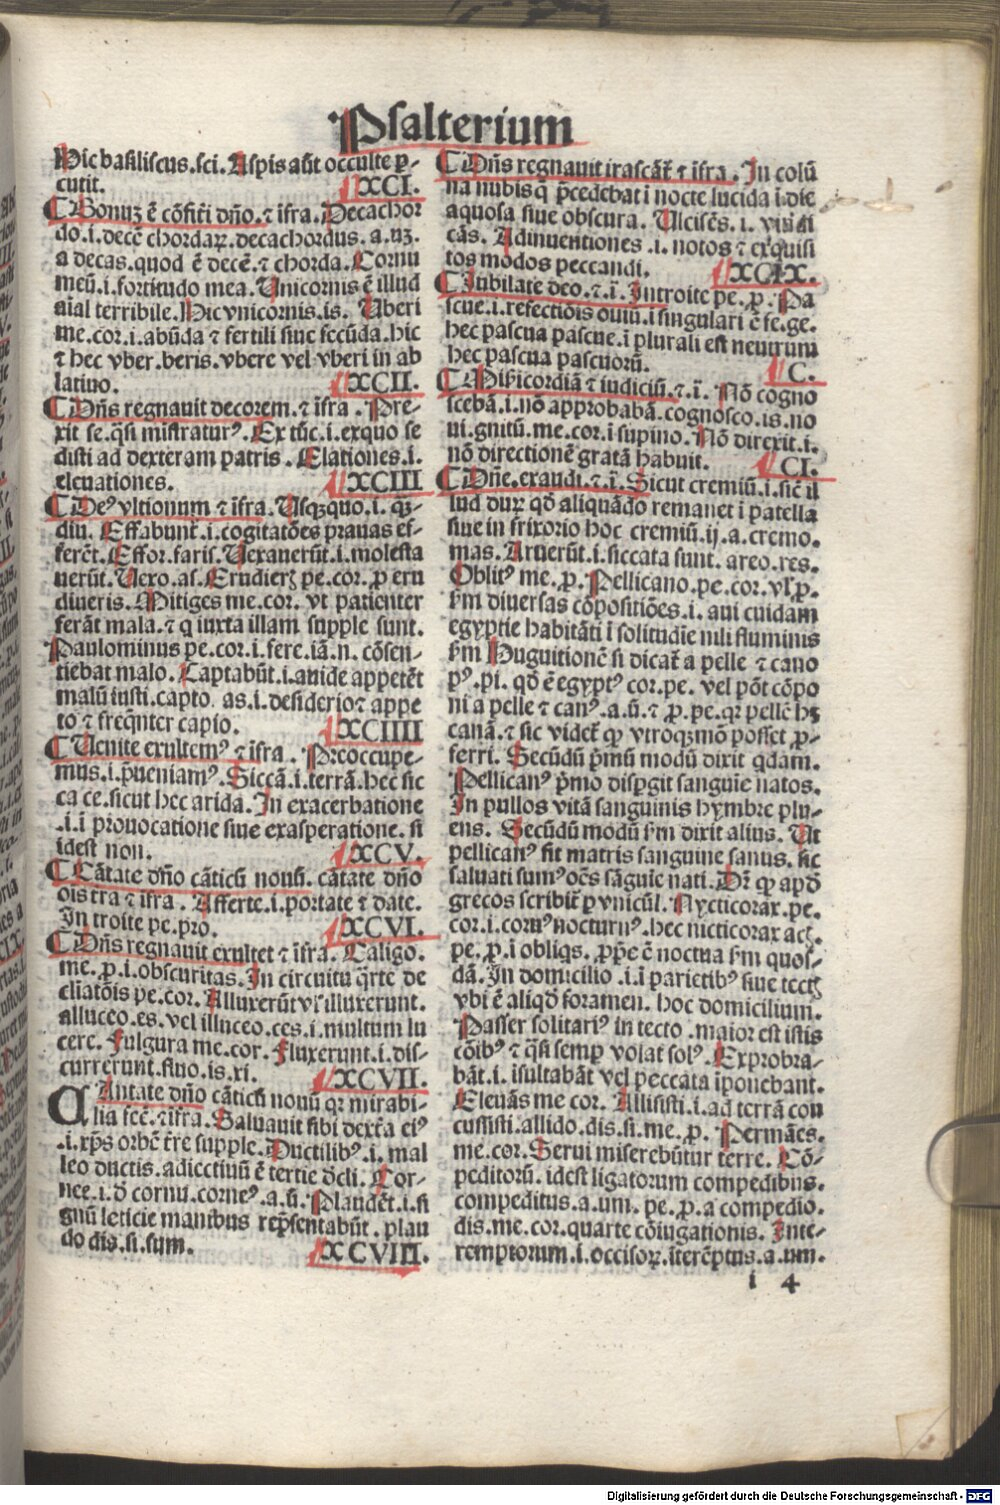 Psalterium
Hic basiliscus.sci.Aspis aũt occulte ꝑ-
cutit.
XCI.
Bonuꝫ ẽ cõfiteri dño.⁊ ĩfra.Decachor
do.i.decẽ chordaꝝ.decachordus.a.uꝫ.
a decas.quod ẽ decẽ.⁊ chorda.Cornu
meũ.i.fortitudo mea.Unicornis ẽ illud
aial terribile.Hic vnicornis.is. Uberi
me.cor.i.abũda ⁊ fertili siue fecũda.hic
⁊ hec vber.beris.vbere vel vberi in ab
latiuo.
XCII.
Dñs regnauit decorem.⁊ ĩfra.Pre-
xit se.q̃si mĩstraturꝰ.Ex tũc.i.exquo se
disti ad dexteram patris.Elationes.i.
eleuationes.
XCIII
Deꝰ vltionum ⁊ ĩfra.Usqꝫquo.i.ꝙ̃-
diu.Effabunt̃.i.cogitatões prauas ef-
ferẽt.Effor.faris.Uexauerũt.i.molesta
uerũt.Uexo.as.Erudierꝫ pe.cor.ꝓ eru
diueris.Mitiges me.cor. vt patienter
ferãt mala.⁊ q iuxta illam supple sunt.
Paulominus pe.cor.i.fere.iã.n.cõsen-
tiebat malo.Captabũt.i.auide appetẽt
malũ iusti.capto.as.i.desidero⁊ appe
to ⁊ freq̃nter capio.
XCIIII
Uenite exultemꝰ ⁊ ĩfra.Preoccupe-
mus.i.p̃ueniamꝰ.Siccã.i.terrã.hec sic
ca ce.sicut hec arida.In exacerbatione
.i.ĩ prouocatione siue exasperatione.si
idest non.
XCV.
Cãtate dño cãticũ nouũ. cãtate dño
oĩs tra ⁊ ĩfra. Afferte.i.portate ⁊ date.
In troite pe.pro.
XCVI.
Dñs regnauit exultet ⁊ ĩfra.Caligo.
me.ꝓ.i.obscuritas.In circuitu q̃rte de
cliatõis pe.cor.Alluxerũt vĩ illuxerunt.
alluceo.es.vel illuceo.ces.i.multum lu
cere.Fulgura me.cor.Fluxerunt.i.dis-
currerunt.fluo.is.xi.
XCVII.
CAntate dño cãticũ nouũ qꝛ mirabi-
lia fec̃.⁊ĩfra.Saluauit sibi dext̃a eiꝰ
.i.xp̃s orbẽ t̃re supple.Ductilibꝰ.i.mal
leo ductis.adiectiuũ ẽ tertie d̃cli.Cor-
nee.i.d̃ cornu.corneꝰ.a.ũ.Plaudẽt.i.si
gnũ leticie manibus rep̃sentabũt.plau
do dis.si.sum.
XCVIII.
Dñs regnauit irascãt̃ ⁊ ĩfra.In colũ
na nubis q̃ p̃cedebat ĩ nocte lucida ĩ.die
aquosa siue obscura. Ulciscẽs.i. vindi
cãs.Adinuentiones.i.notos ⁊ exquisi
tos modos peccandi.
XCIX.
Iubilate deo.⁊.ĩ.Introite pe.ꝓ.Pa
scue.i.refectiõis ouiũ.ĩ singulari ẽ fe.ge.
hec pascua pascue.ĩ plurali est neutrum
hec pascua pascuorũ.
C.
Misericordiã ⁊ iudiciũ.⁊.ĩ.Nõ cogno
scebã.i.nõ approbabã.cognosco.is.no
ui.gnitũ.me.cor.ĩ supino.Nõ direxit.i.
nõ directionẽ gratã habuit.
CI.
Dñe.exaudi.⁊.ĩ.Sicut cremiũ.i.sic̃ il
lud duꝝ qd̃ aliquãdo remanet ĩ patella
siue in frixorio hoc cremiũ.ij.a.cremo.
mas.Aruerũt.i.siccata sunt.areo.res.
Oblitꝰ me.ꝓ.Pellicano.pe.cor.vĩ ꝓ.
ẞm diuersas cõpositiões.i.aui cuidam
egyptie habitãti ĩ solitudie nili fluminis
ẞm Huguitionẽ si dicat̃ a pelle ⁊ cano
pꝰ.pi.qd̃ ẽ egyptꝰ cor.pe. vel põt cõpo
ni a pelle ⁊ canꝰ.a.ũ.⁊ ꝓ.pe.qꝛ pellẽ hꝫ
canã.⁊ sic videt̃ ꝙ vtroqꝫmõ posset ꝓ-
ferri. Secũdũ p̃mũ modũ dixit q̃dam.
Pellicanꝰ p̃mo disp̱git sanguie natos.
In pullos vitã sanguinis hymbre plu-
ens. Secũdũ modũ ẞm dixit alius. Ut
pellicanꝰ fit matris sanguine sanus. sic
saluati sumꝰ oẽs sãguie nati.Dr̃ ꝙ apd̃
grecos scribit̃ ꝑ vnicũl.Nycticorax.pe.
cor.i.coruꝰ nocturnꝰ.hec nicticorax acꝭ.
pe.ꝓ.ĩ obliqs.ꝓp̃e ẽ noctua ẞm quos-
dã.In domicilio.i.ĩ parietibꝰ siue tectꝭ
vbi ẽ aliqd̃ foramen. hoc domicilium.
Passer solitariꝰ in tecto.maior est istis
cõibꝰ ⁊ q̃si semꝑ volat solꝰ.Exprobra-
bãt.i. ĩsultabãt vel peccata ĩponebant.
Eleuãs me cor. Allisisti.i.ad terrã con
cussisti.allido.dis.si.me.ꝓ. Permães.
me.cor.Serui miserebũtur terre. Cõ-
peditorũ.idest ligatorum compedibus.
compeditus.a.um. pe.ꝓ.a compedio.
dis.me.cor.quarte cõiugationis. Inte-
remptorum.i.occisoꝝ.ĩterẽptus.a.um.
i 4
Digitalisierung gefördert durch die Deutsche Forschungsgemeinschaft - DFG